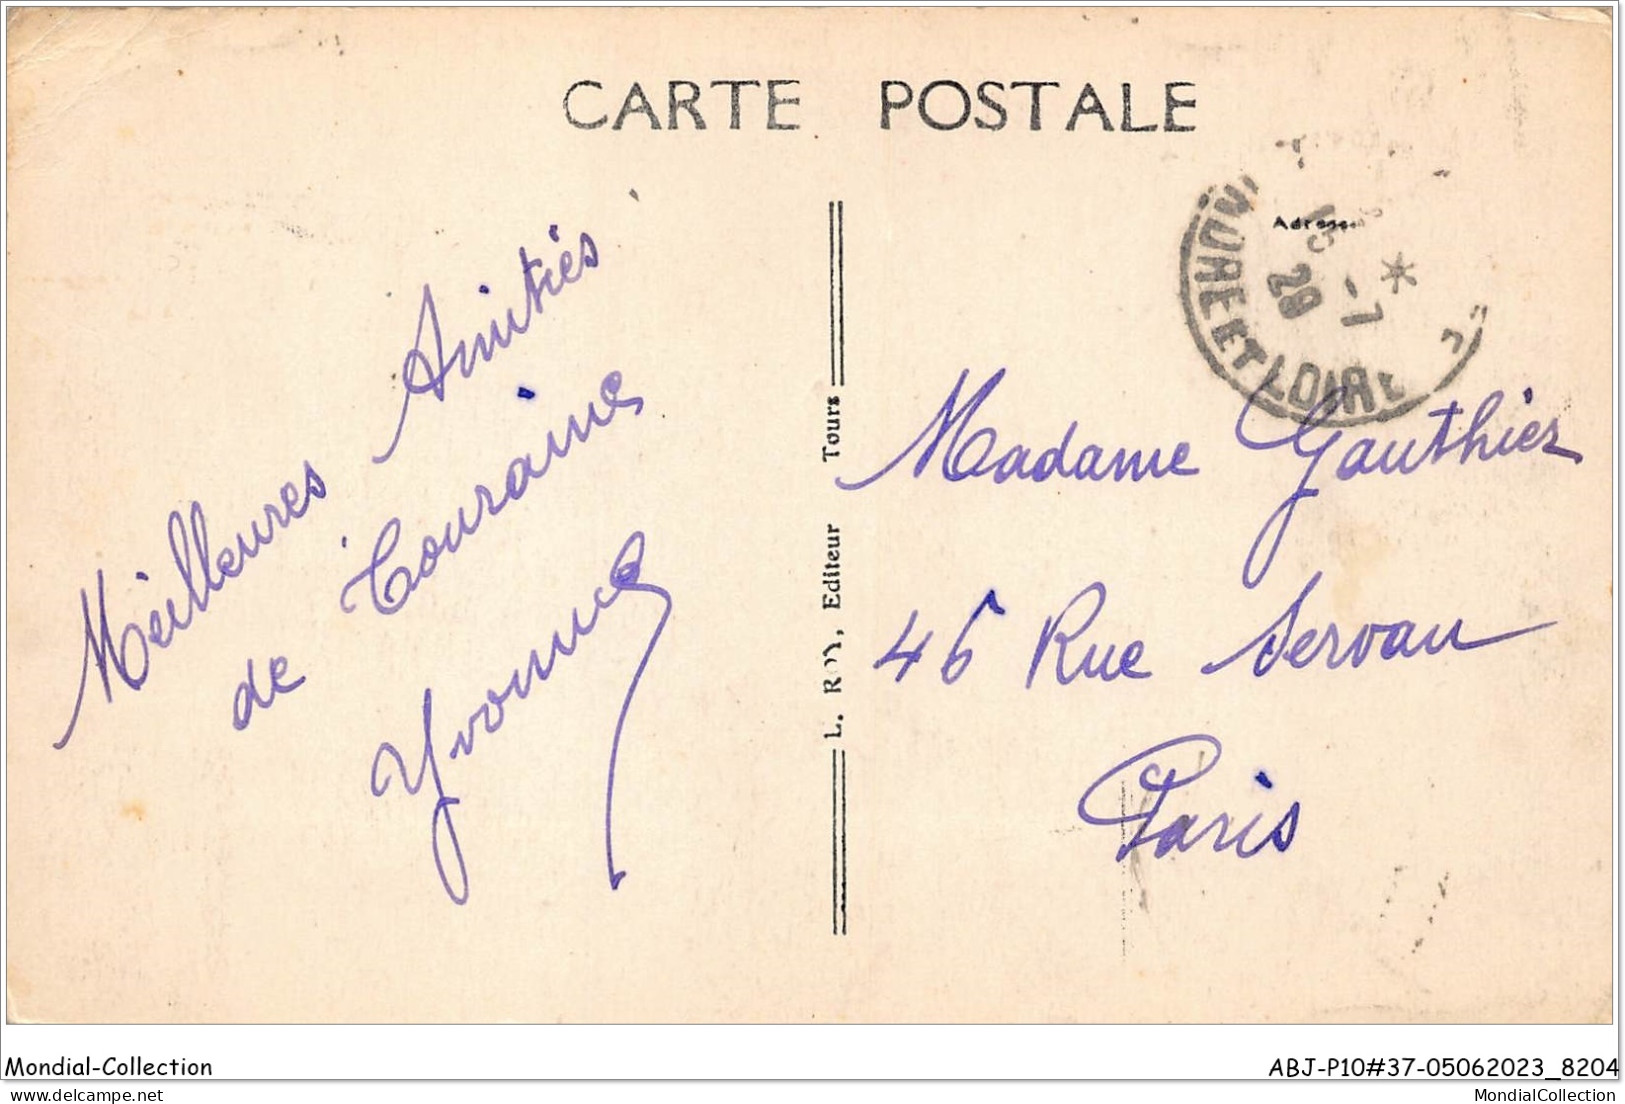 CARTE POSTALE
Meilleures Amitiés
de Touraine
Yvonne
L. Editeur Tours
INDRE ET LOIRE
-7
28
Madame Gauthier
46 Rue Servan
Paris
Mondial-Collection
ABJ-P10#37-05062023_8204
delcampe.net
MondialCollection